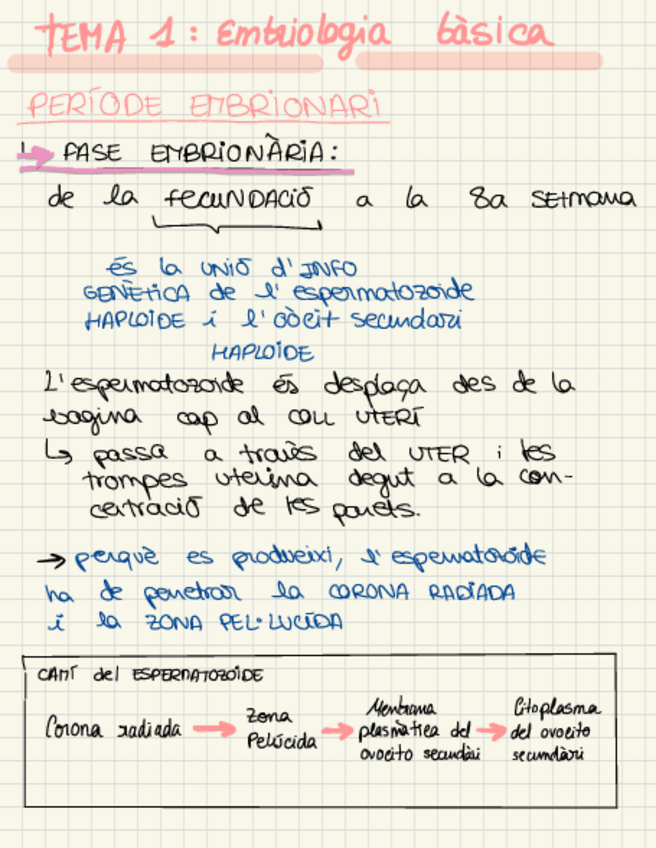 TEMA 1: Embriologia bàsica
PERÍODE EMBRIONARI
↳ FASE EMBRIONÀRIA:
de la fecUNDACIÓ a la 8a SEtmana
és la UNIÓ d'INFO
GENÈTICA de l'espermatozoide
HAPLOIDE i l'oòcit secundari
HAPLOIDE
L'espermatozoide és desplaça des de la
bagina cap al coll UTERÍ
↳ passa a través del UTER i les
trompes uterina degut a la con-
certració de les parets.
→ perquè es produeixi, l'espermatozoide
ha de penetrar la CORONA RADIADA
i la ZONA PEL·LUCIDA
CAMÍ del ESPERMATOZOIDE
Corona radiada → Zona Pelúcida → Membrana plasmàtica del ovocito secundàri → Citoplasma del ovocito secundàri